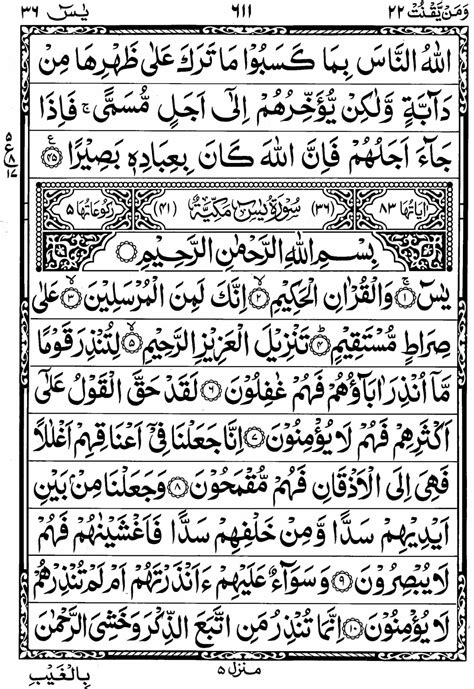 وَمَنْ يَّقْنُتْ ٢٢ ٦١١ يٰسٓ ٣٦
اللّٰهُ النَّاسَ بِمَا كَسَبُوْا مَا تَرَكَ عَلٰى ظَهْرِهَا مِنْ
دَآبَّةٍ وَّلٰكِنْ يُّؤَخِّرُهُمْ اِلٰٓى اَجَلٍ مُّسَمًّى ۚ فَاِذَا
جَآءَ اَجَلُهُمْ فَاِنَّ اللّٰهَ كَانَ بِعِبَادِهٖ بَصِيْرًا ﴿٤٥﴾
ع ٥ ٨ ١٧
اٰيَاتُهَا ٨٣ (٣٦) سُوْرَةُ يٰسٓ مَكِّيَّةٌ (٤١) رُكُوْعَاتُهَا ٥
بِسْمِ اللّٰهِ الرَّحْمٰنِ الرَّحِيْمِ
يٰسٓ ﴿١﴾ وَالْقُرْاٰنِ الْحَكِيْمِ ﴿٢﴾ اِنَّكَ لَمِنَ الْمُرْسَلِيْنَ ﴿٣﴾ عَلٰى
صِرَاطٍ مُّسْتَقِيْمٍ ﴿٤﴾ تَنْزِيْلَ الْعَزِيْزِ الرَّحِيْمِ ﴿٥﴾ لِتُنْذِرَ قَوْمًا
مَّآ اُنْذِرَ اٰبَآؤُهُمْ فَهُمْ غٰفِلُوْنَ ﴿٦﴾ لَقَدْ حَقَّ الْقَوْلُ عَلٰٓى
اَكْثَرِهِمْ فَهُمْ لَا يُؤْمِنُوْنَ ﴿٧﴾ اِنَّا جَعَلْنَا فِيْٓ اَعْنَاقِهِمْ اَغْلٰلًا
فَهِيَ اِلَى الْاَذْقَانِ فَهُمْ مُّقْمَحُوْنَ ﴿٨﴾ وَجَعَلْنَا مِنْۢ بَيْنِ
اَيْدِيْهِمْ سَدًّا وَّمِنْ خَلْفِهِمْ سَدًّا فَاَغْشَيْنٰهُمْ فَهُمْ
لَا يُبْصِرُوْنَ ﴿٩﴾ وَسَوَآءٌ عَلَيْهِمْ ءَاَنْذَرْتَهُمْ اَمْ لَمْ تُنْذِرْهُمْ
لَا يُؤْمِنُوْنَ ﴿١٠﴾ اِنَّمَا تُنْذِرُ مَنِ اتَّبَعَ الذِّكْرَ وَخَشِيَ الرَّحْمٰنَ
منزل ٥
بِالْغَيْبِ